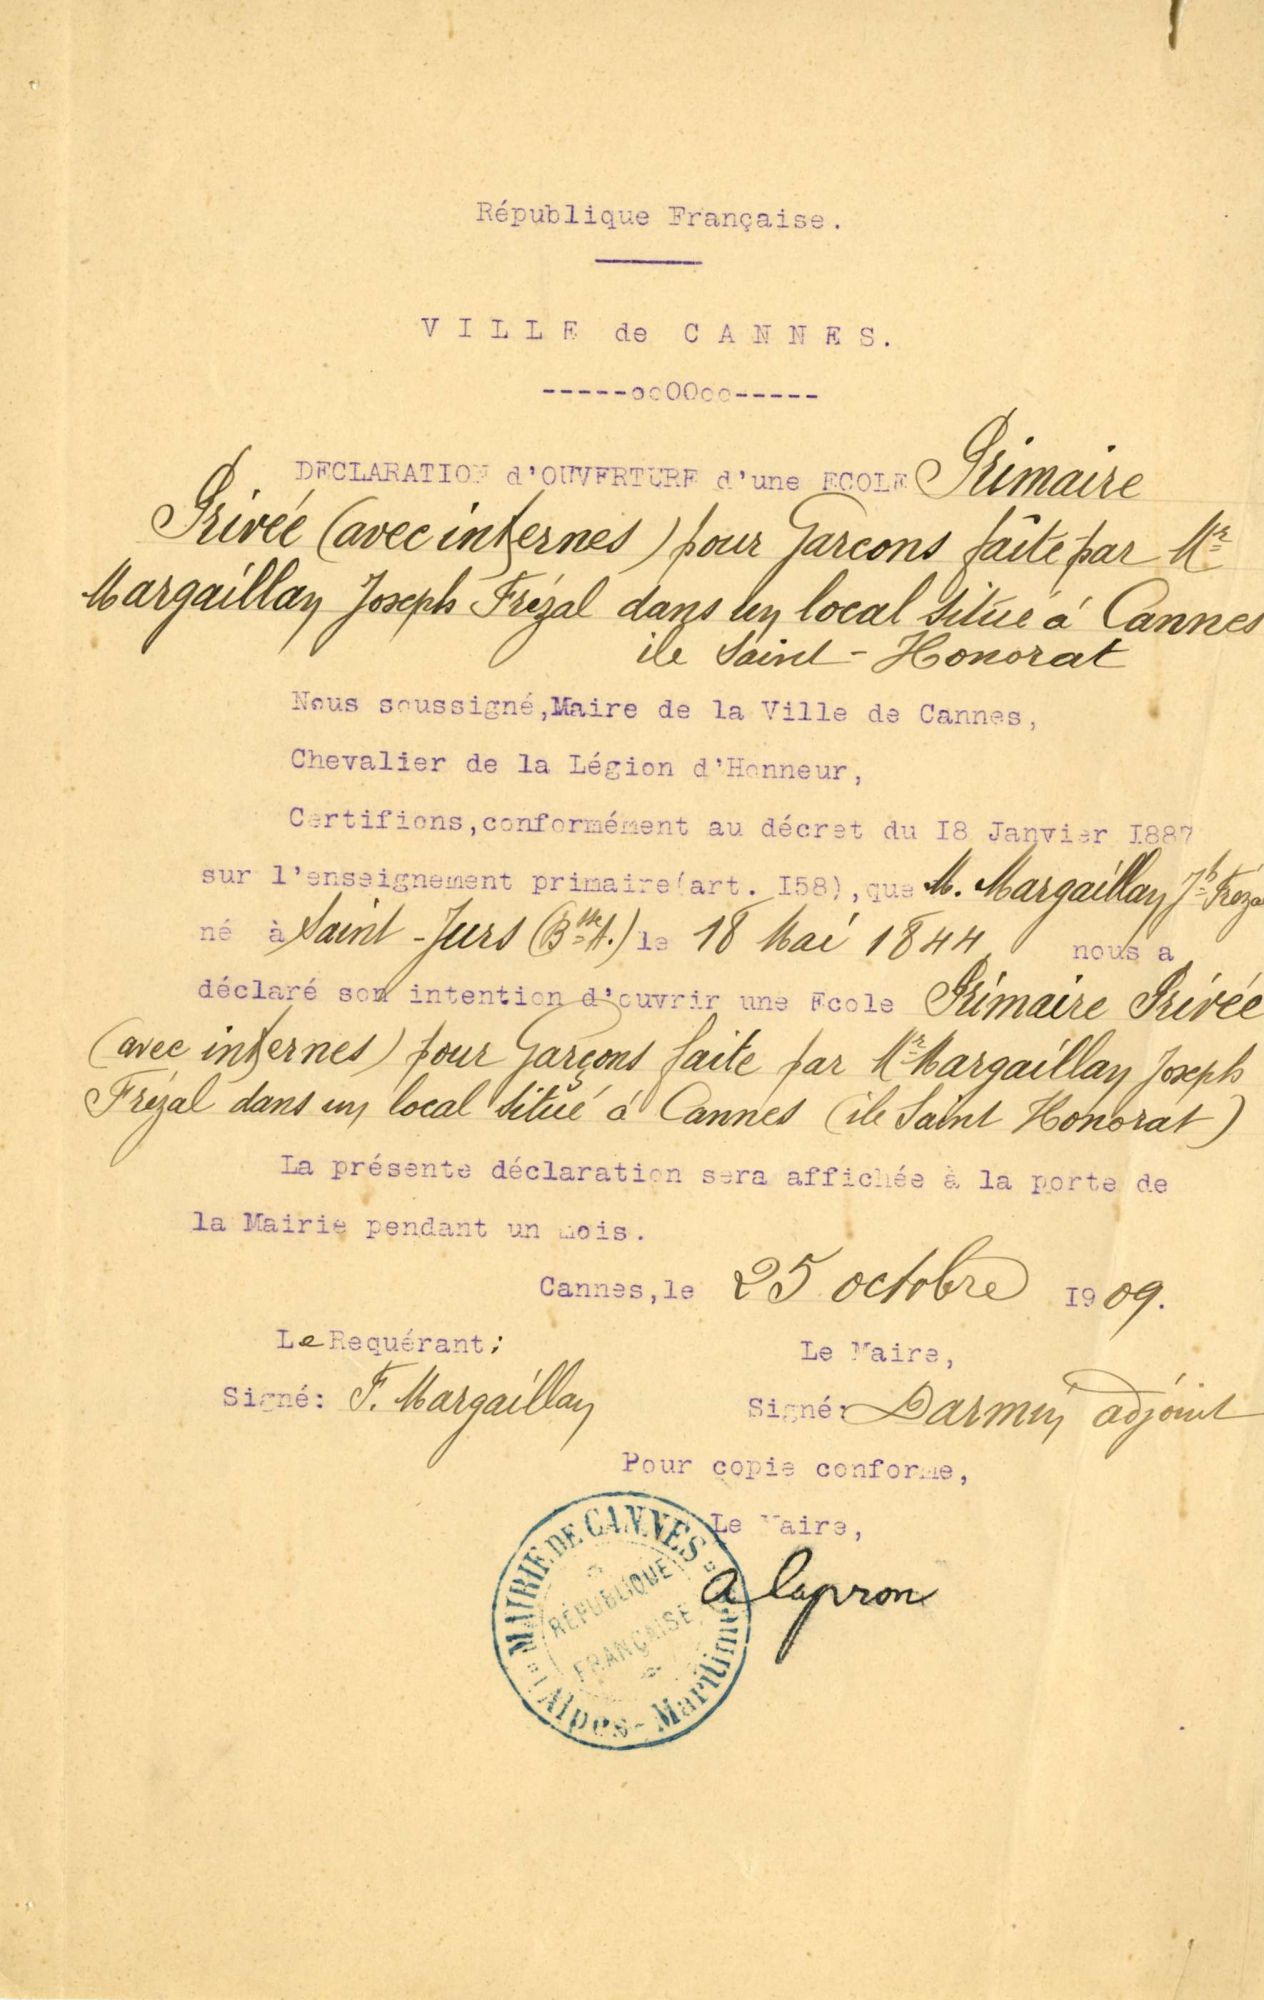 République Française.
VILLE de CANNES.
-----ooOOoo-----
DECLARATION d'OUVERTURE d'une ECOLE Primaire
Privée (avec internes) pour Garcons faîte par Mr
Margaillan Joseph Frézal dans un local situé à Cannes
ile Saint-Honorat
Nous soussigné,Maire de la Ville de Cannes,
Chevalier de la Légion d'Honneur,
Certifions,conformément au décret du I8 Janvier I887
sur l'enseignement primaire(art. I58),que M. Margaillan Jh Fréza
né à Saint-Jurs (Bses A.) le 18 Mai 1844 nous a
déclaré son intention d'ouvrir une Ecole Primaire Privée
(avec internes) pour Garçons faite par Mr Margaillan Joseph
Frézal dans un local situé à Cannes (ile Saint Honorat)
La présente déclaration sera affichée à la porte de
la Mairie pendant un mois.
Cannes,le 25 octobre I909.
Le Requérant:
Le Maire,
Signé: F. Margaillan
Signé: Darmuy adjoint
Pour copie conforme,
Le Maire,
A Capron
MAIRIE DE CANNES
RÉPUBLIQUE
FRANÇAISE
(Alpes-Maritimes)